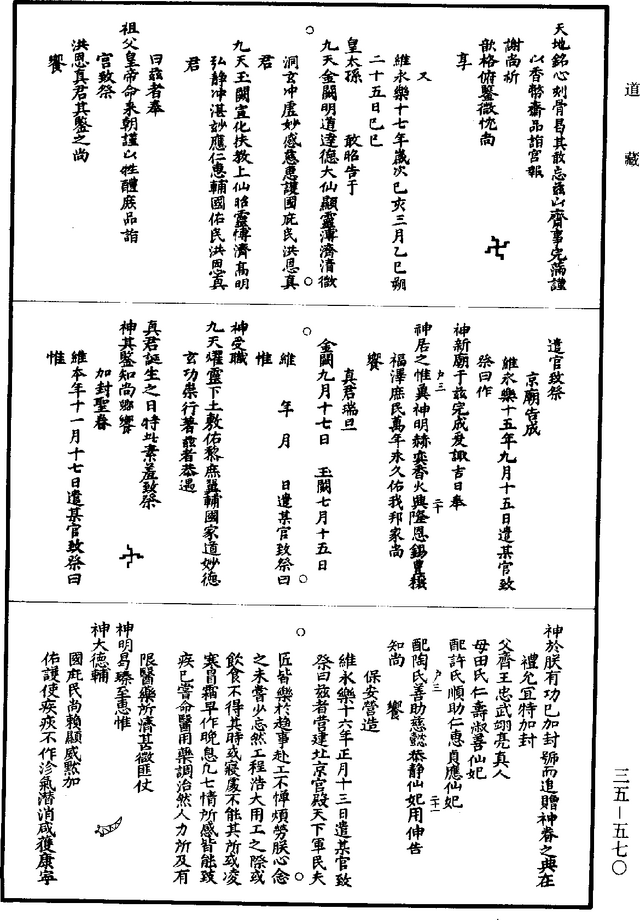 道藏
天地銘心刻骨曷其敢忘玆以齊事完滿謹
以香幣齋品詣宮報
謝尚祈
歆格俯鑒微忱尚
享
又
維永樂十七年歲次己亥三月乙巳朔
二十五日己巳
皇太孫 敢昭告于
九天金闕明道達德大仙顯靈溥濟清微
洞玄冲虛妙感慈惠護國庇民洪恩真
君
九天玉闕宣化扶教上仙昭靈博濟高明
弘靜冲湛妙應仁惠輔國佑民洪恩真
君
曰玆者奉
祖父皇帝命来朝謹以牲醴庶品詣
宮致祭
洪恩真君其鑒之尚
饗
遣官致祭
京廟告成
維永樂十五年九月十五日遣某官致
祭曰作
神新廟于玆完成爰諏吉日奉
神居之惟真神明赫奕香火興隆恩錫豊穰
福澤庶民萬年永久佑我邦家尚
饗
真君瑞旦
金闕九月十七日 玉闕七月十五日
維 年 月 日遣某官致祭曰
惟
神受職
九天燿靈下土敷佑黎庶翼輔國家道妙德
玄功崇行著玆者恭遇
真君誕生之日特以素羞致祭
神其鑒知尚饗
加封聖眷
維本年十一月十七日遣某官致祭曰
惟
神於朕有功已加封號而追贈神眷之典在
禮允宜特加封
父齊王忠武翊亮真人
母田氏仁壽淑善仙妃
配許氏順助仁惠貞應仙妃
配陶氏善助慈懿恭静仙妃用伸告
知尚 饗
保安營造
維永樂十六年正月十三日遣某官致
祭曰玆者營建北京宮殿天下軍民夫
匠皆樂於趨事赴工不憚煩勞朕心念
之未嘗少忘然工程浩大用工之際或
飲食不得其時或寢處不能其所或凌
寒冒霜早作晚息凡七情所感皆能致
疾已嘗命醫用藥調治然人力所及有
限醫藥所濟甚微匪仗
神明曷臻至惠惟
神大德輔
國庇民尚賴顯威黙加
佑護使疾疢不作沴氣潛消咸獲康寧
三五—五七〇